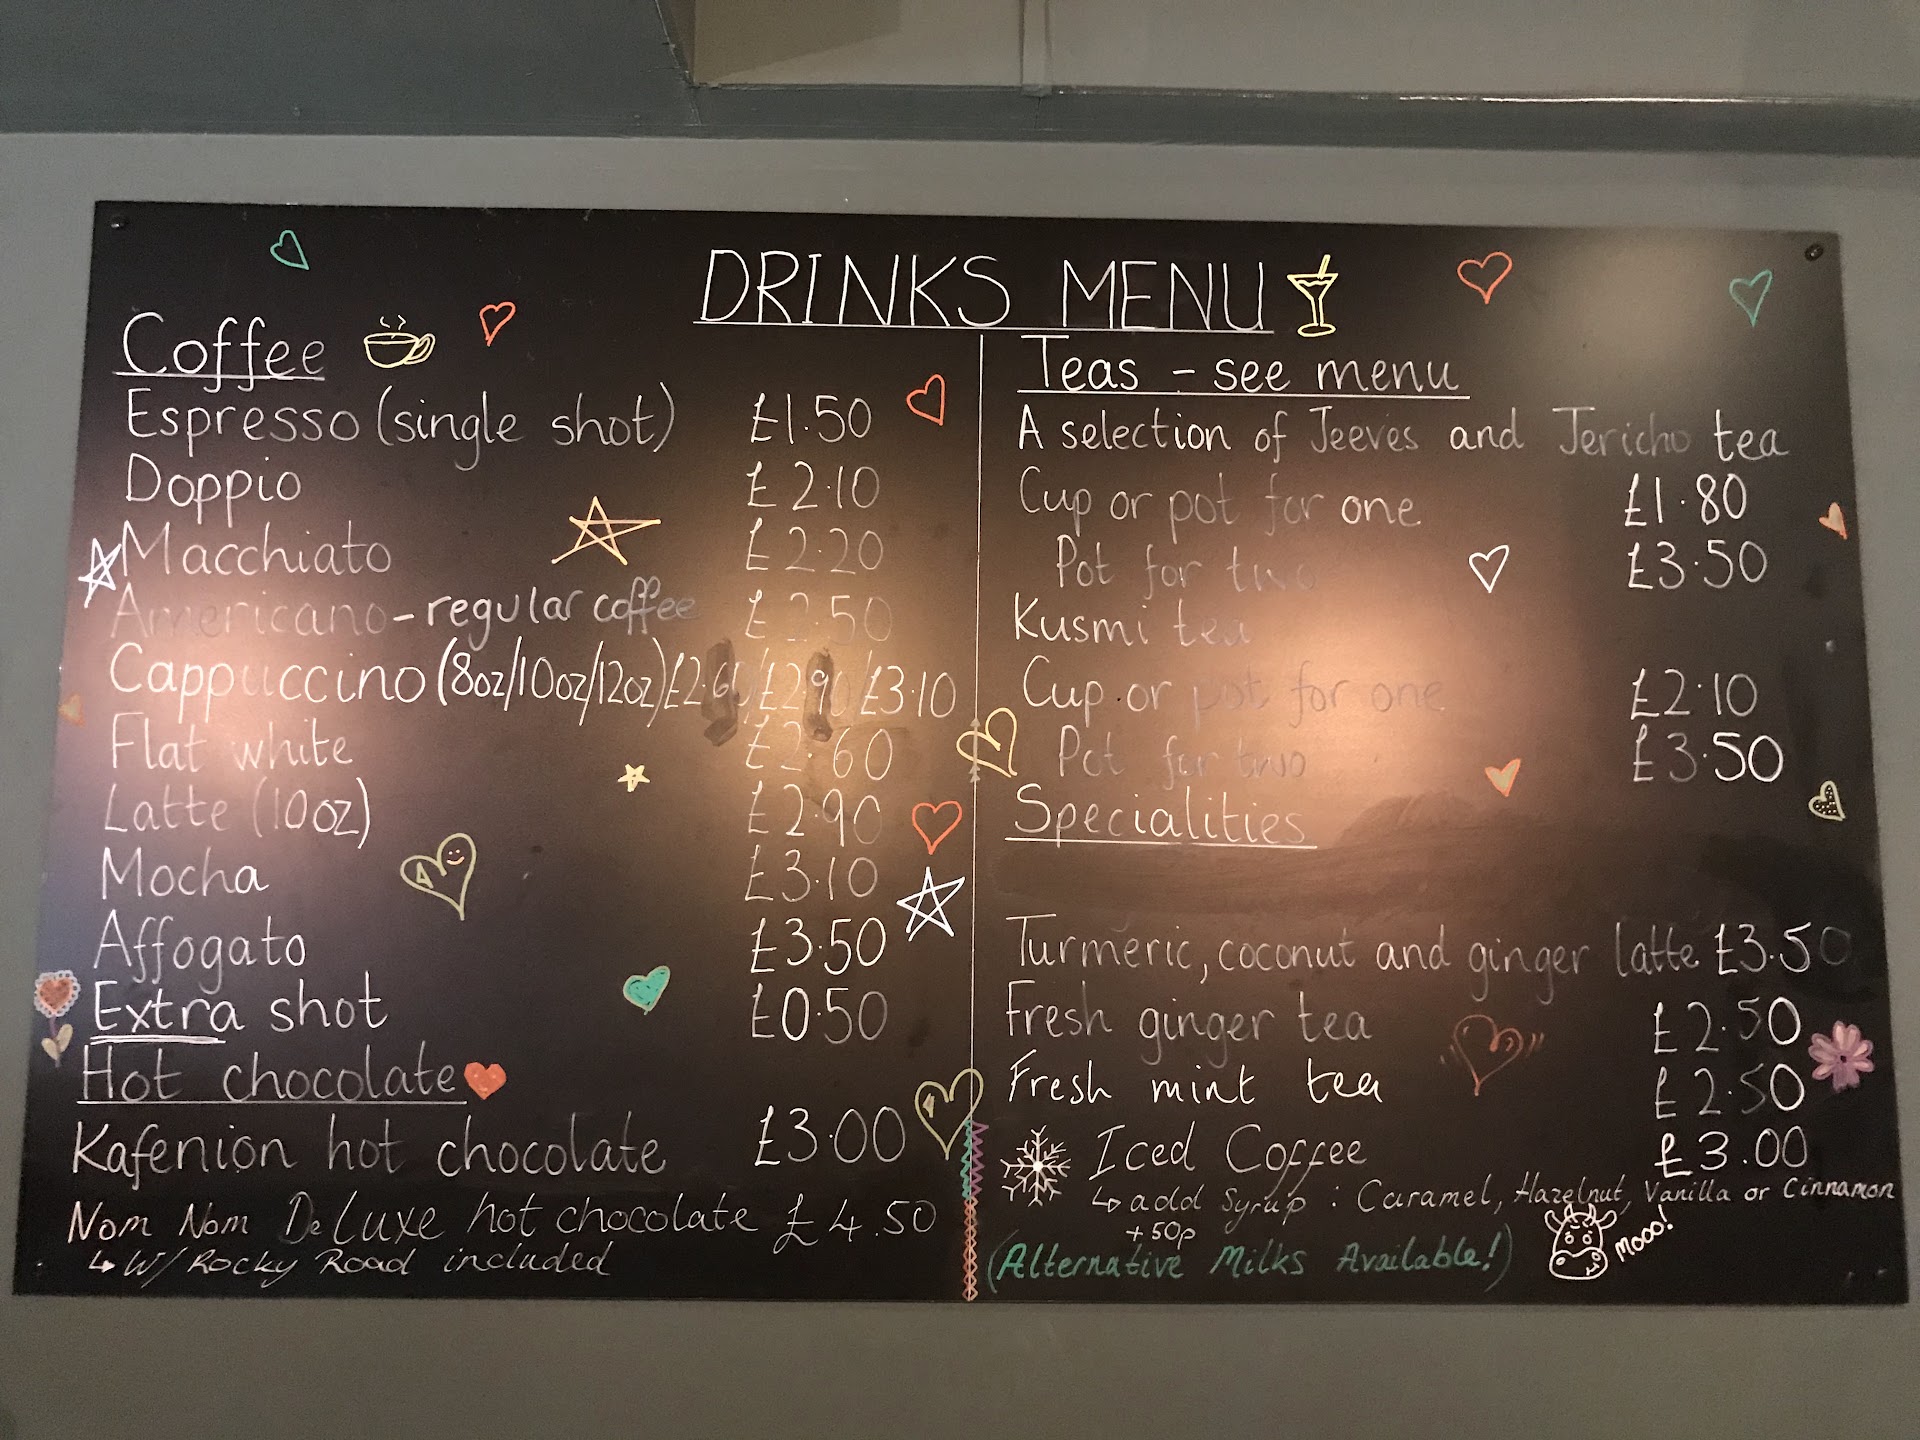 DRINKS MENU
Coffee
Espresso (single shot) £1.50
Doppio £2.10
Macchiato £2.20
Americano - regular coffee £2.50
Cappuccino (8oz/10oz/12oz) £2.60/£2.90/£3.10
Flat white £2.60
Latte (10oz) £2.90
Mocha £3.10
Affogato £3.50
Extra shot £0.50
Hot chocolate
Kafenion hot chocolate £3.00
Nom Nom DeLuxe hot chocolate £4.50
↳ W/ Rocky Road included
Teas - see menu
A selection of Jeeves and Jericho tea
Cup or pot for one £1.80
Pot for two £3.50
Kusmi tea
Cup or pot for one £2.10
Pot for two £3.50
Specialities
Turmeric, coconut and ginger latte £3.50
Fresh ginger tea £2.50
Fresh mint tea £2.50
Iced Coffee £3.00
↳ add syrup : Caramel, Hazelnut, Vanilla or Cinnamon
+50p
(Alternative Milks Available!)
Mooo!